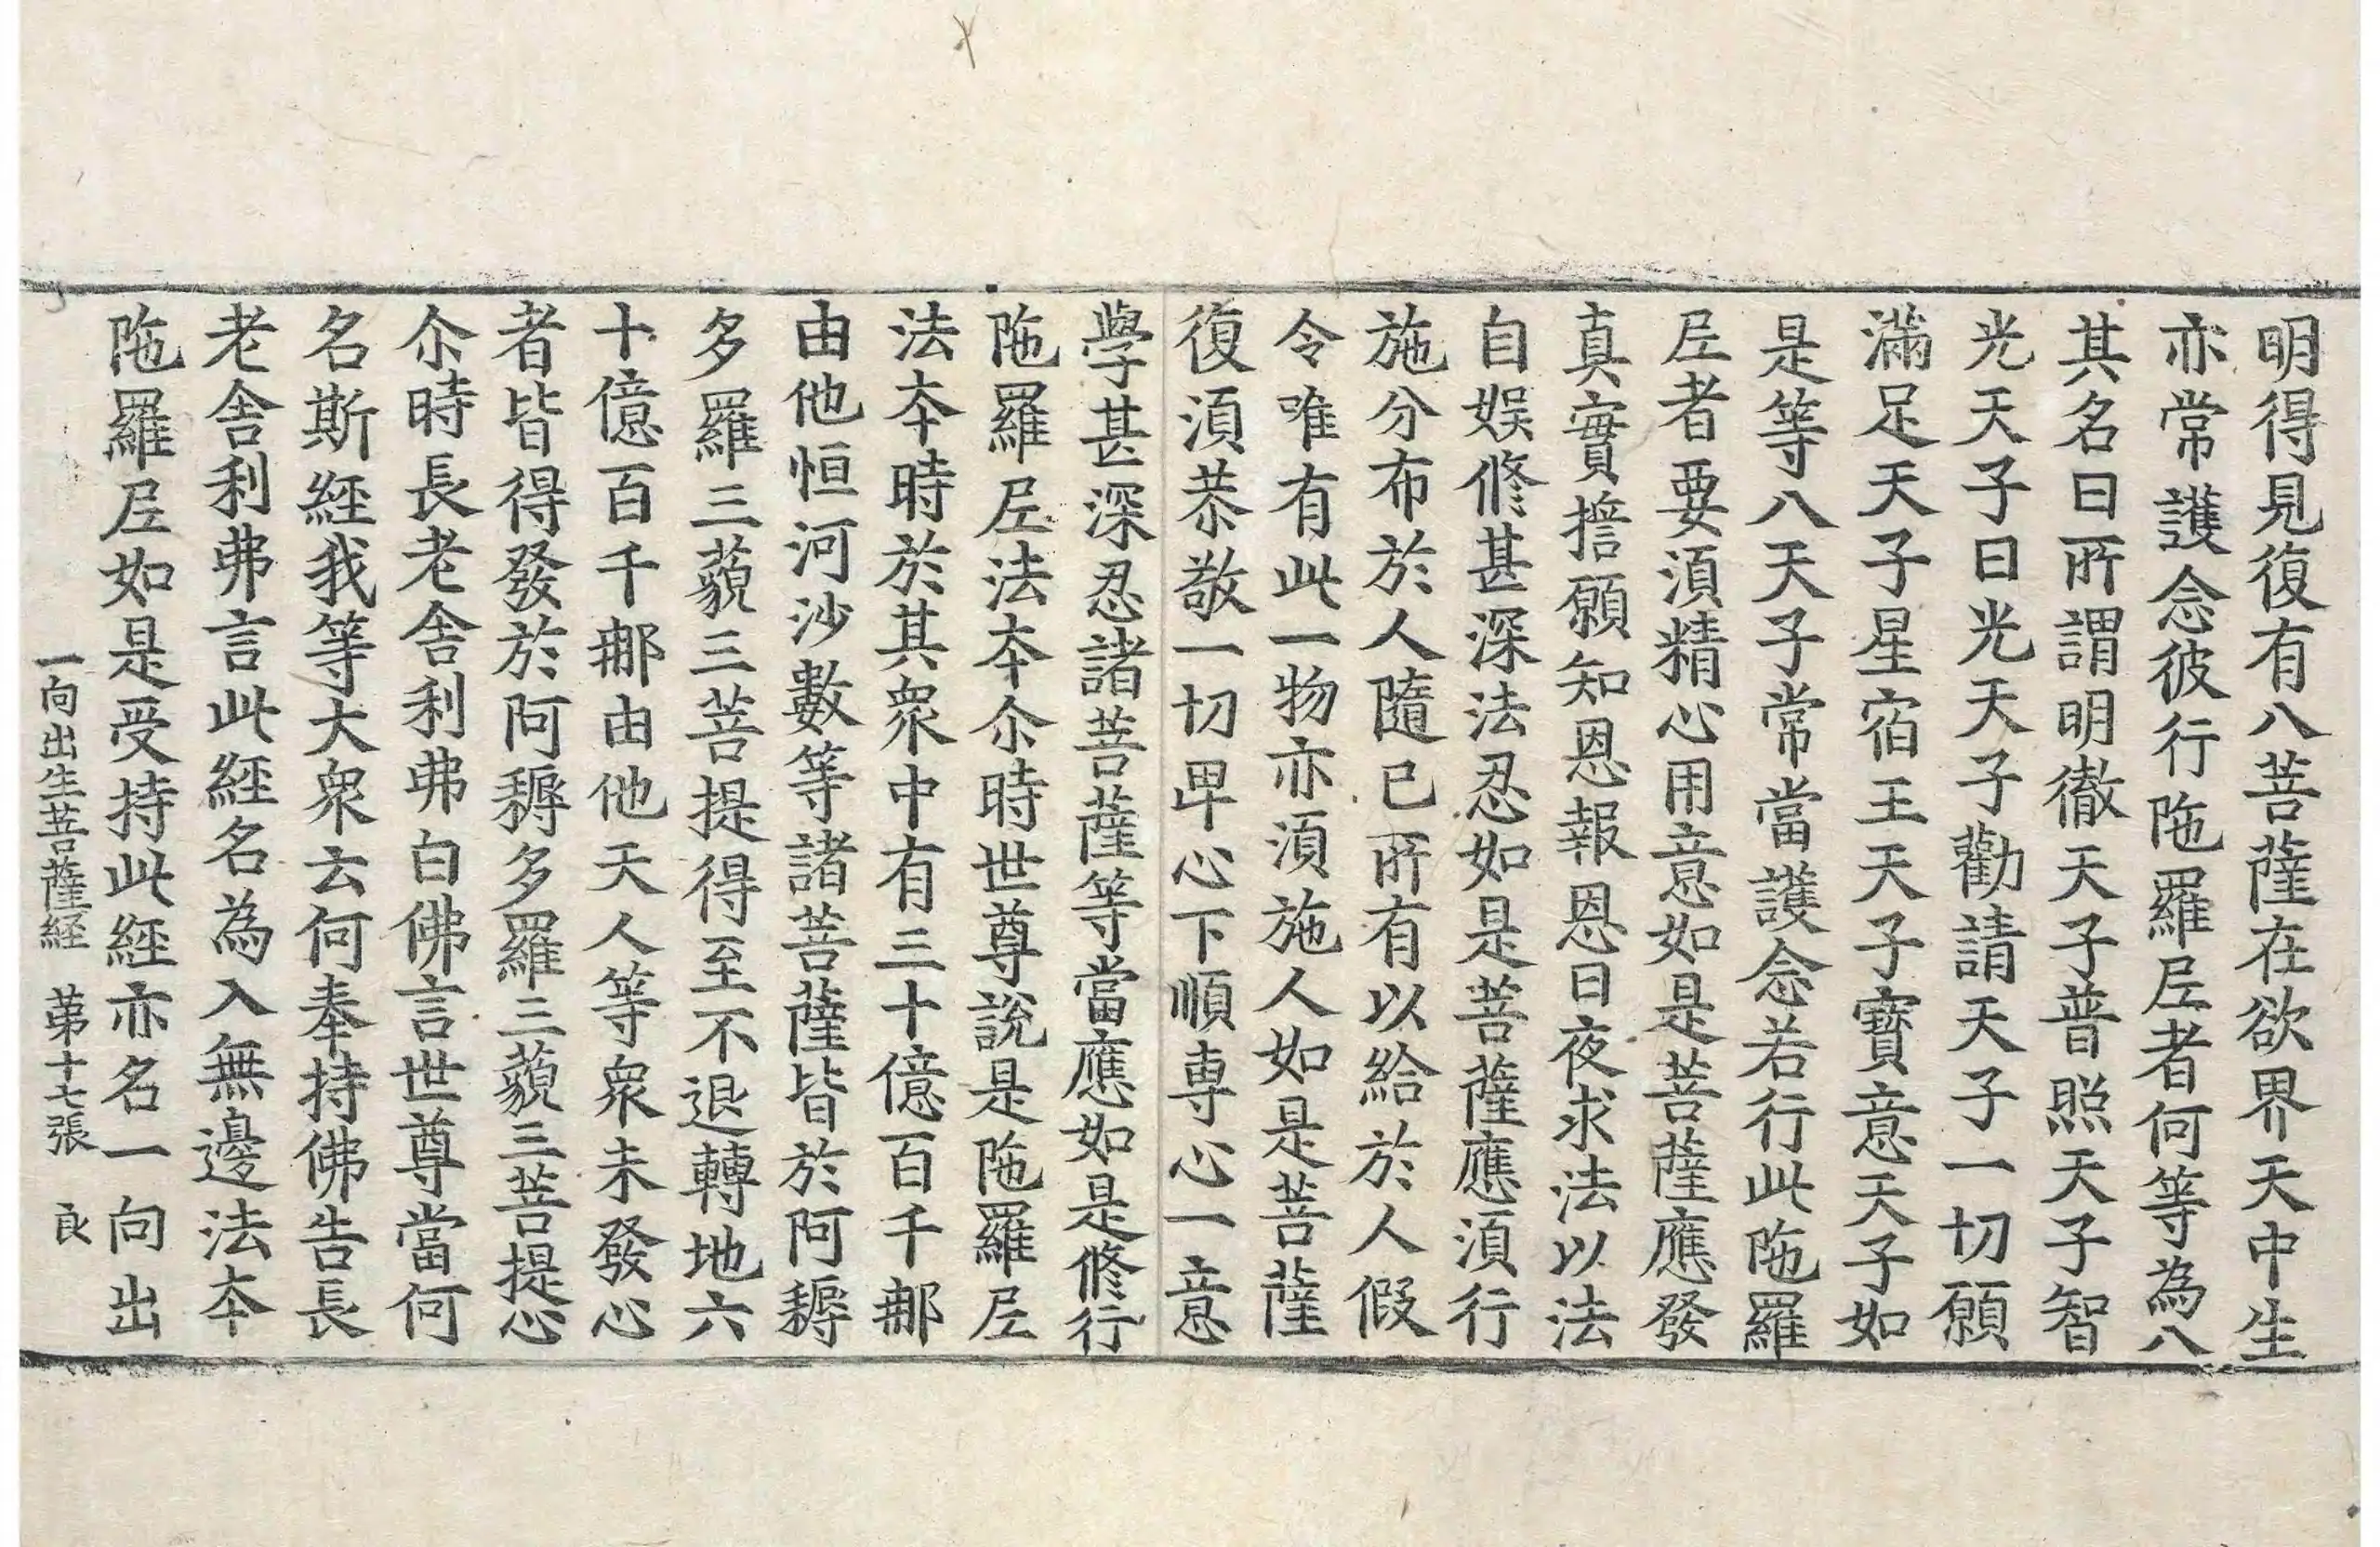 明得見復有八菩薩在欲界天中生
亦常護念彼行陁羅𡰱者何等為八
其名曰所謂明徹天子普照天子智
光天子日光天子勸請天子一切願
滿足天子星宿王天子寶意天子如
是等八天子常當護念若行此陁羅
𡰱者要須精心用意如是菩薩應發
真實擔願知恩報恩日夜求法以法
自娛修甚深法忍如是菩薩應須行
施分布於人隨已所有以給於人假
令唯有此一物亦須施人如是菩薩
復須恭敬一切卑心下順專心一意
學甚深忍諸菩薩等當應如是修行
陁羅𡰱法夲尒時世尊說是陁羅𡰱
法夲時於其衆中有三十億百千郍
由他恒河沙數等諸菩薩皆於阿耨
多羅三藐三菩提得至不退轉地六
十億百千郍由他天人等衆未發心
者皆得發於阿耨多羅三藐三菩提心
尒時長老舍利弗白佛言世尊當何
名斯經我等大衆云何奉持佛告長
老舍利弗言此經名為入無邊法夲
陁羅𡰱如是受持此經亦名一向出
一向出生菩薩経 苐十七張 良